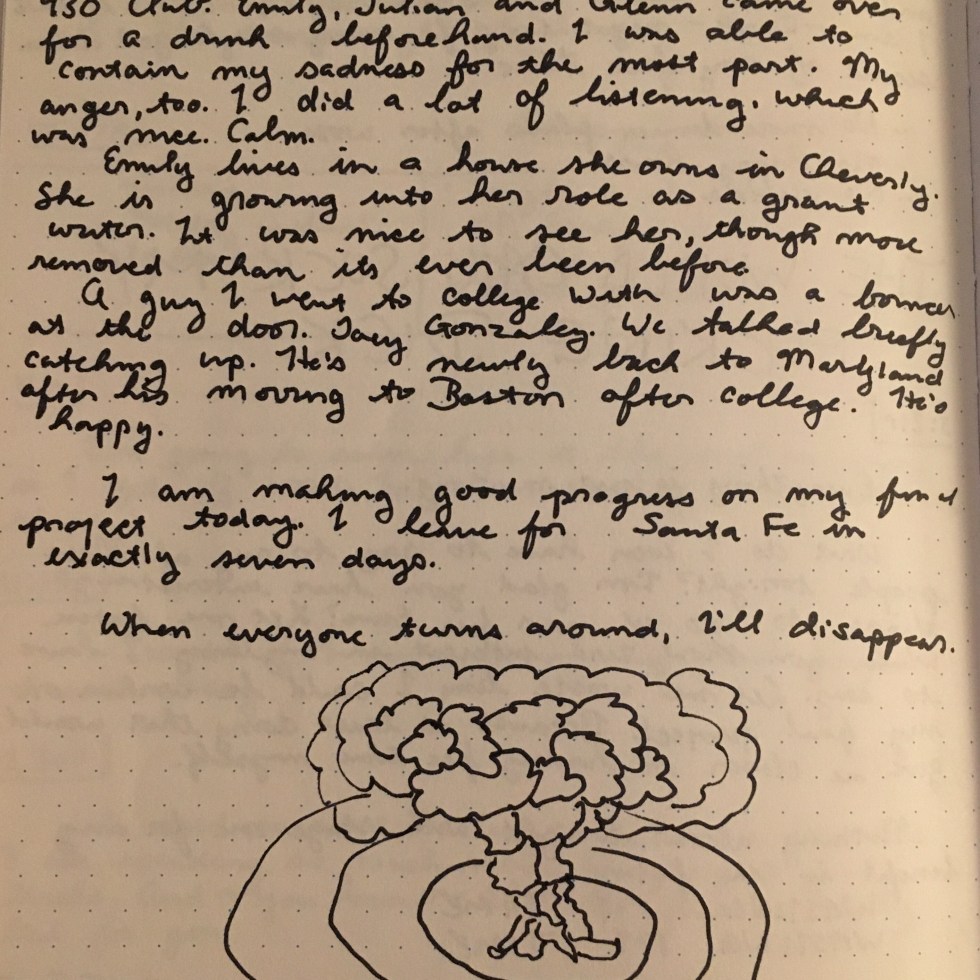 930 Club. Emily, Julian and Glenn came over
for a drink beforehand. I was able to
contain my sadness for the most part. My
anger, too. I did a lot of listening, which
was nice. Calm.
Emily lives in a house she owns in Cheverly.
She is growing into her role as a grant
writer. It was nice to see her, though more
removed than its ever been before.
A guy I went to college with was a bouncer
at the door. Joey Gonzalez. We talked briefly
catching up. He's newly back to Maryland
after his moving to Boston after college. He's
happy.
I am making good progress on my final
project today. I leave for Santa Fe in
exactly seven days.
When everyone turns around, I'll disappear.